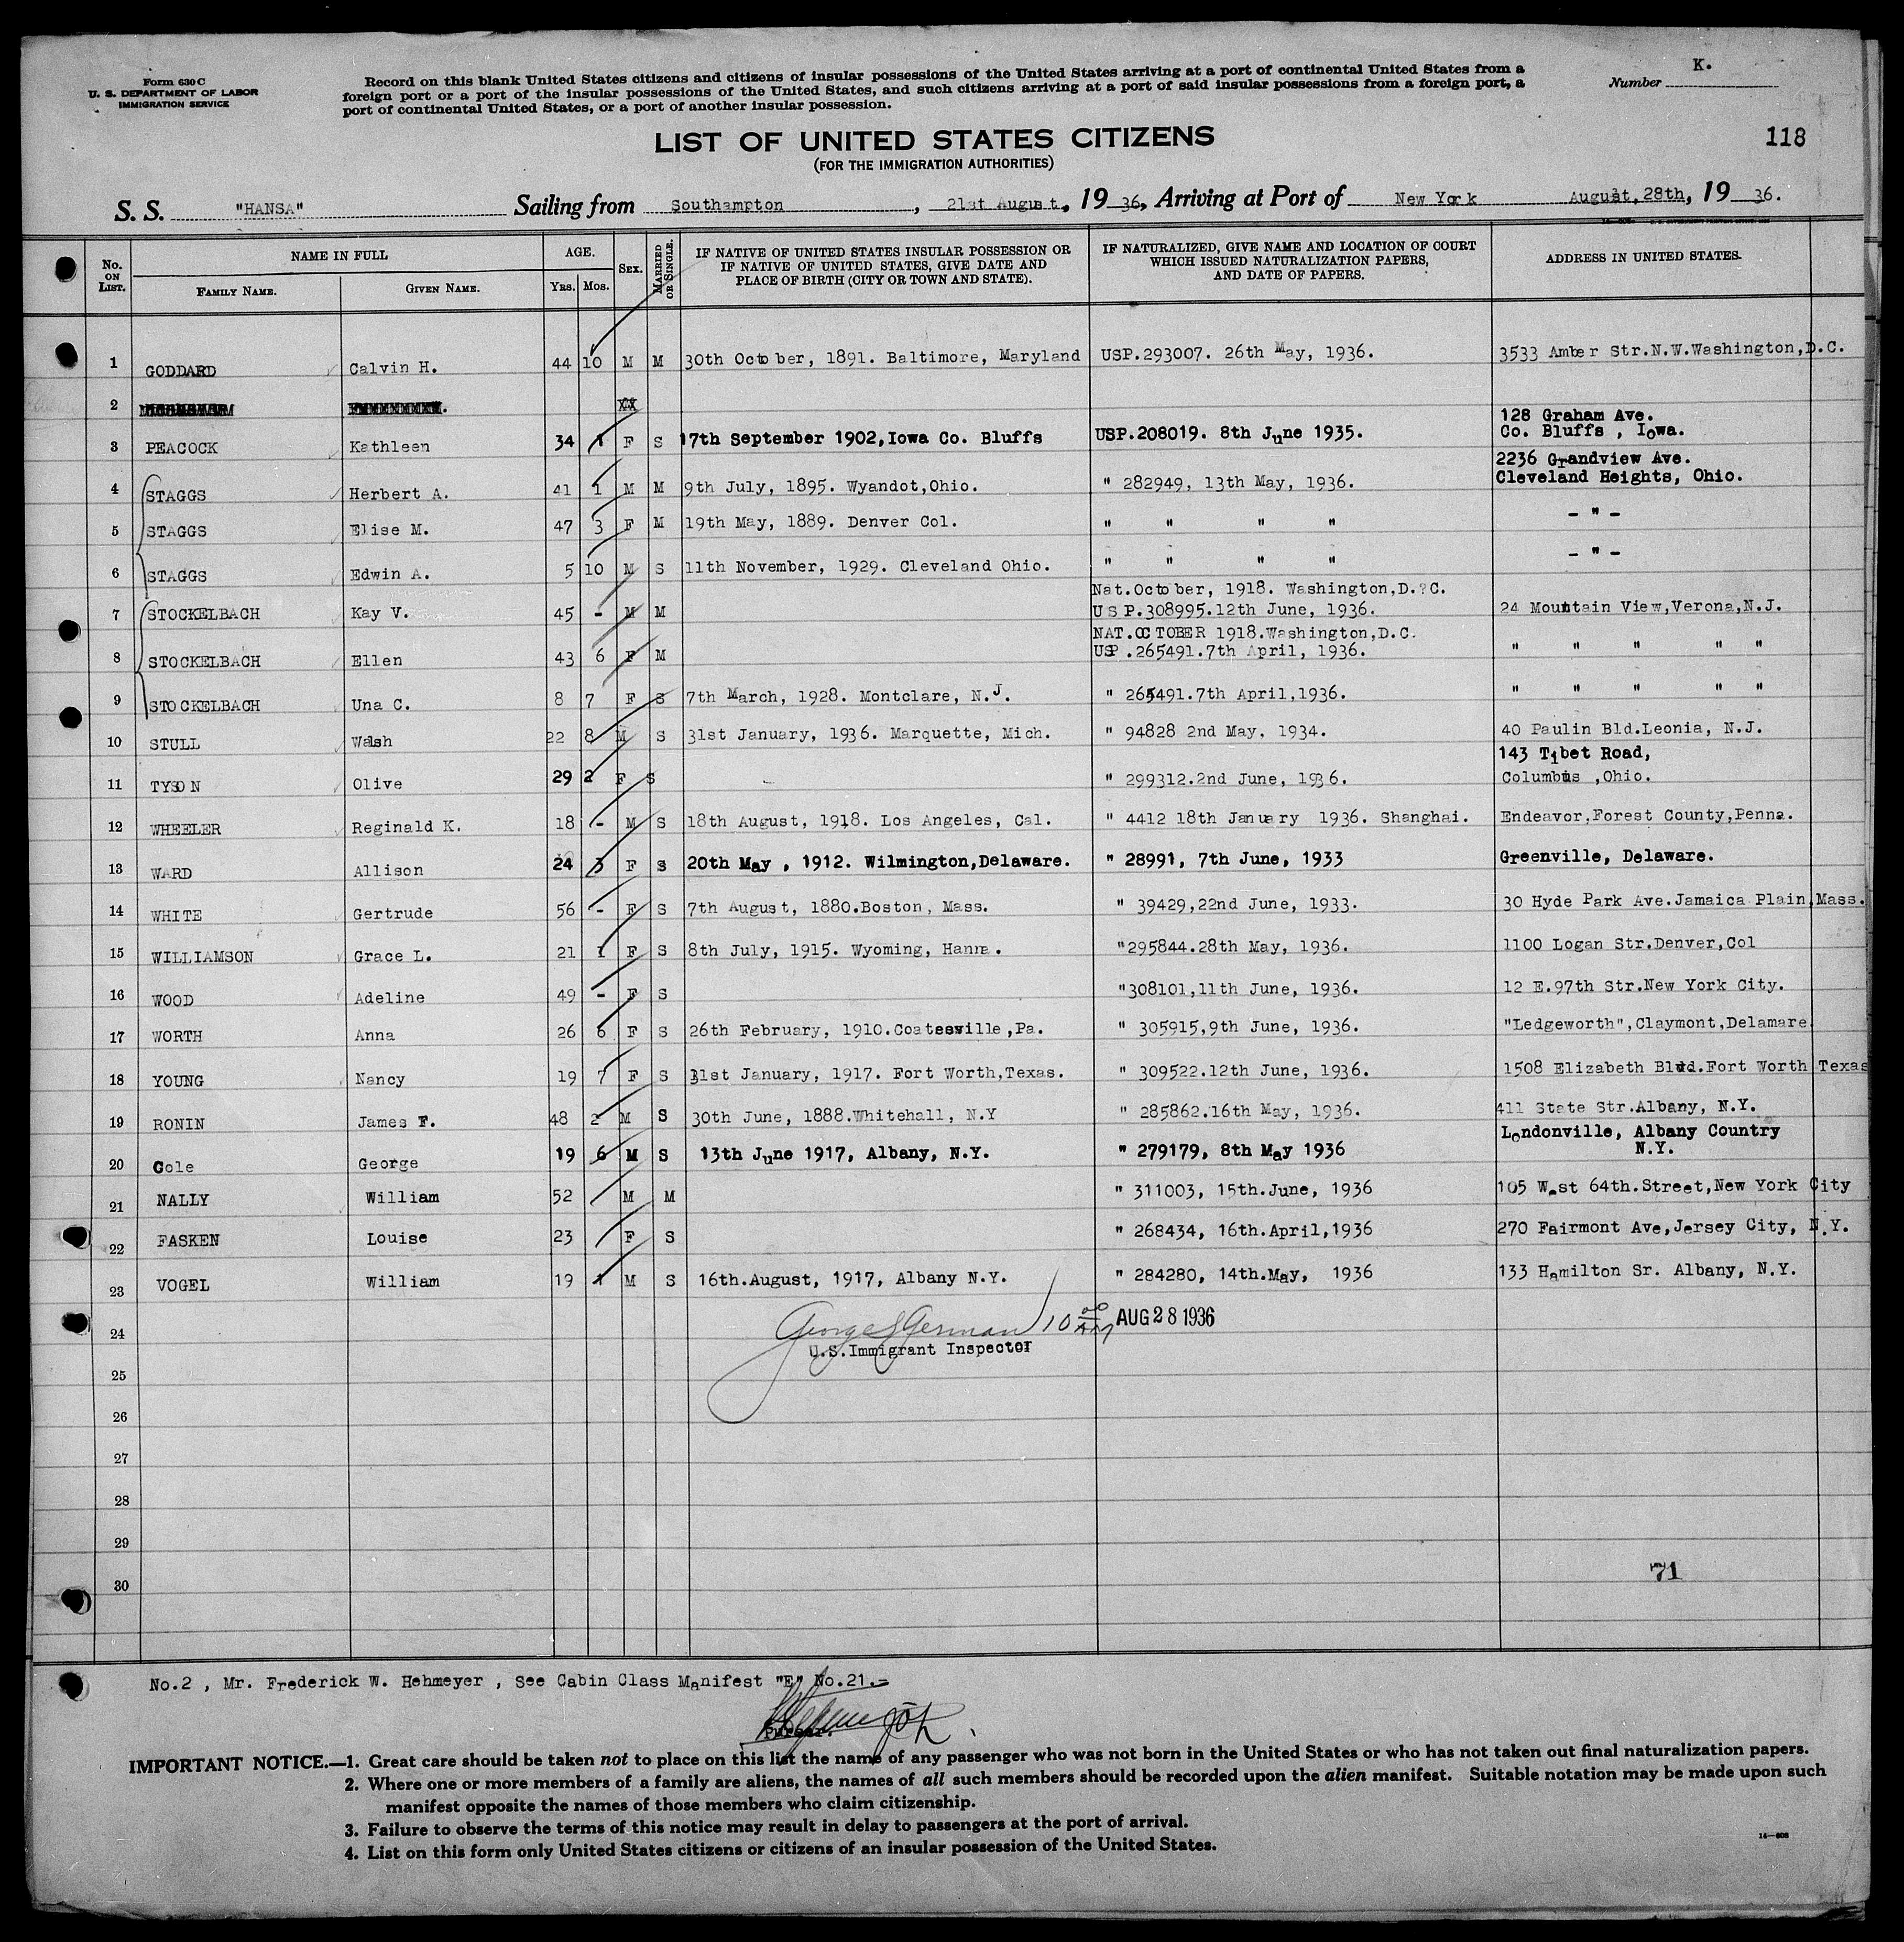 Form 630 C
U. S. DEPARTMENT OF LABOR
IMMIGRATION SERVICE
Record on this blank United States citizens and citizens of insular possessions of the United States arriving at a port of continental United States from a
foreign port or a port of the insular possessions of the United States, and such citizens arriving at a port of said insular possessions from a foreign port, a
port of continental United States, or a port of another insular possession.
K.
Number
LIST OF UNITED STATES CITIZENS
(FOR THE IMMIGRATION AUTHORITIES)
118
S. S. "HANSA" Sailing from Southampton, 21st August, 1936, Arriving at Port of New York August, 28th, 1936.
No. ON LIST. NAME IN FULL FAMILY NAME. GIVEN NAME. AGE. YRS. MOS. SEX. MARRIED OR SINGLE. IF NATIVE OF UNITED STATES INSULAR POSSESSION OR IF NATIVE OF UNITED STATES, GIVE DATE AND PLACE OF BIRTH (CITY OR TOWN AND STATE). IF NATURALIZED, GIVE NAME AND LOCATION OF COURT WHICH ISSUED NATURALIZATION PAPERS, AND DATE OF PAPERS. ADDRESS IN UNITED STATES.
1 GODDARD Calvin H. 44 10 M M 30th October, 1891. Baltimore, Maryland USP.293007. 26th May, 1936. 3533 Amber Str.N.W.Washington,D.C.
2 XX
128 Graham Ave.
3 PEACOCK Kathleen 34 1 F S 17th September 1902,Iowa Co. Bluffs USP.208019. 8th June 1935. Co. Bluffs , Iowa.
2236 Grandview Ave.
4 STAGGS Herbert A. 41 1 M M 9th July, 1895. Wyandot,Ohio. " 282949, 13th May, 1936. Cleveland Heights, Ohio.
5 STAGGS Elise M. 47 3 F M 19th May, 1889. Denver Col. " " " " - " -
6 STAGGS Edwin A. 5 10 M S 11th November, 1929. Cleveland Ohio. " " " " - " -
Nat.October, 1918. Washington,D.?C.
7 STOCKELBACH Kay V. 45 - M M USP.308995.12th June, 1936. 24 Mountain View,Verona,N.J.
NAT.OCTOBER 1918.Washington,D.C.
8 STOCKELBACH Ellen 43 6 F M USP .265491.7th April, 1936. " " " " "
9 STOCKELBACH Una C. 8 7 F S 7th March, 1928. Montclare, N.J. " 265491.7th April,1936. " " " " "
10 STULL Walsh 22 8 M S 31st January, 1936. Marquette, Mich. " 94828 2nd May, 1934. 40 Paulin Bld.Leonia, N.J.
143 Tibet Road,
11 TYSON Olive 29 2 F S " 299312.2nd June, 1936. Columbus ,Ohio.
12 WHEELER Reginald K. 18 - M S 18th August, 1918. Los Angeles, Cal. " 4412 18th January 1936. Shanghai. Endeavor,Forest County,Penna.
13 WARD Allison 24 3 F S 20th May , 1912. Wilmington,Delaware. " 28991, 7th June, 1933 Greenville, Delaware.
14 WHITE Gertrude 56 - F S 7th August, 1880.Boston, Mass. " 39429,22nd June, 1933. 30 Hyde Park Ave.Jamaica Plain,Mass.
15 WILLIAMSON Grace L. 21 1 F S 8th July, 1915. Wyoming, Hanna. "295844.28th May, 1936. 1100 Logan Str.Denver,Col
16 WOOD Adeline 49 - F S "308101,11th June, 1936. 12 E.97th Str.New York City.
17 WORTH Anna 26 6 F S 26th February, 1910.Coatesville,Pa. " 305915,9th June, 1936. "Ledgeworth",Claymont,Delamare.
18 YOUNG Nancy 19 7 F S 31st January, 1917. Fort Worth,Texas. " 309522.12th June, 1936. 1508 Elizabeth Blvd.Fort Worth Texas
19 RONIN James F. 48 2 M S 30th June, 1888.Whitehall, N.Y " 285862.16th May, 1936. 411 State Str.Albany, N.Y.
Londonville, Albany Country
20 Cole George 19 6 M S 13th June 1917, Albany, N.Y. " 279179, 8th May 1936 N.Y.
21 NALLY William 52 M M " 311003, 15th.June, 1936 105 West 64th.Street,New York City
22 FASKEN Louise 23 F S " 268434, 16th.April,1936 270 Fairmont Ave,Jersey City, N.Y.
23 VOGEL William 19 1 M S 16th.August, 1917, Albany N.Y. " 284280, 14th.May, 1936 133 Hamilton Sr. Albany, N.Y.
24 George German 10 00 AM AUG 28 1936
U.S.Immigrant Inspector
25
26
27
28
29
30
71
No.2 , Mr. Frederick W. Hehmeyer , See Cabin Class Manifest "E" No.21.-
Purser.
IMPORTANT NOTICE.—1. Great care should be taken not to place on this list the name of any passenger who was not born in the United States or who has not taken out final naturalization papers.
2. Where one or more members of a family are aliens, the names of all such members should be recorded upon the alien manifest. Suitable notation may be made upon such
manifest opposite the names of those members who claim citizenship.
3. Failure to observe the terms of this notice may result in delay to passengers at the port of arrival.
4. List on this form only United States citizens or citizens of an insular possession of the United States.
14—808